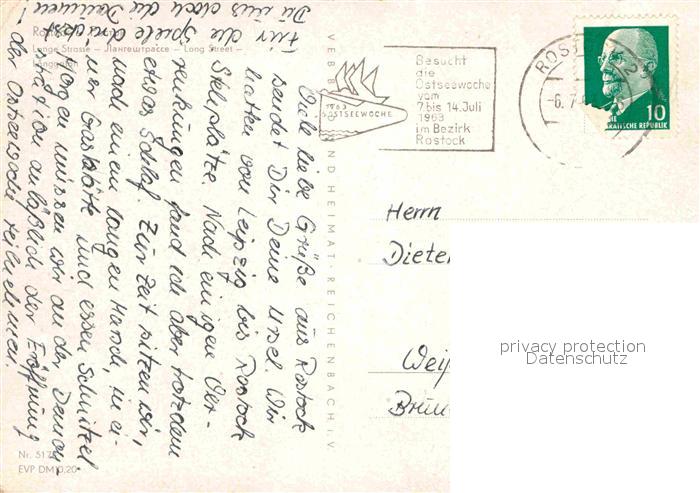 Viele liebe Grüße aus Rostock
sendet Dir Deine Ursel. Wir
hatten von Leipzig bis Rostock
Stehplätze. Nach einigen Ver-
renkungen fand ich aber trotzdem
etwas Schlaf. Zur Zeit sitzen wir,
nach einem langen Marsch, in ei-
ner Gaststätte und essen Schnitzel
Morgen müssen wir an der Demon-
stration anläßlich der Eröffnung
der Ostseewoche teilnehmen.
Für die Spiele drückst
Du uns doch die Daumen!
Lange Strasse – Лангештрассе – Long Street –
Nr. 517
EVP DM 0,20
VEB BILD UND HEIMAT · REICHENBACH i. V.
1963
OSTSEEWOCHE
Besucht
die
Ostseewoche
vom
7. bis 14. Juli
1963
im Bezirk
Rostock
ROST
-6.7
10
DEMOKRATISCHE REPUBLIK
Herrn
Dieter
privacy protection
Datenschutz